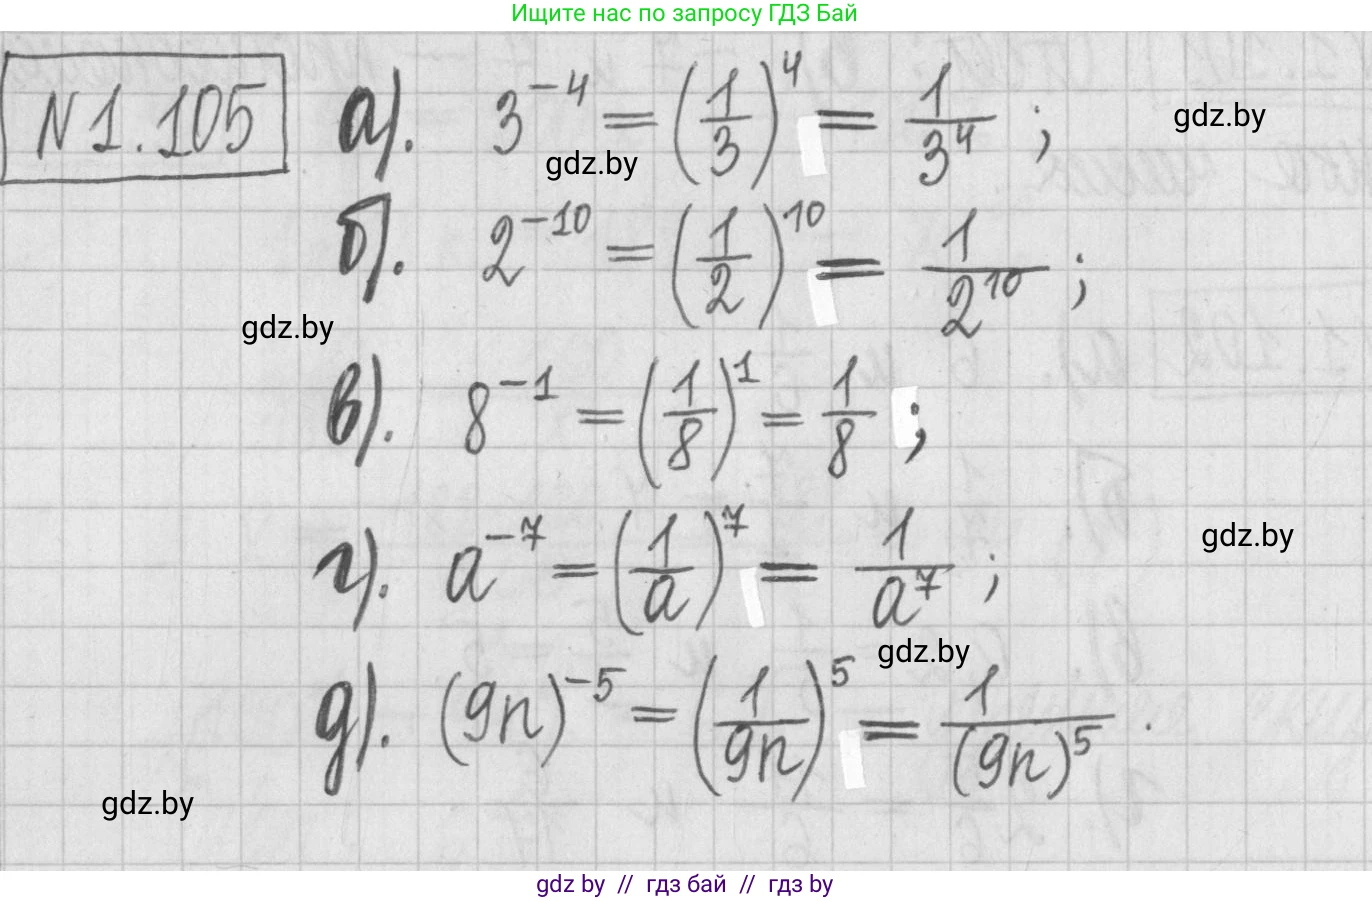 Ищите нас по запросу ГДЗ Бай
N 1.105 а). 3^{-4} = (1/3)^4 = 1/3^4 ;
gdz.by
gdz.by
б). 2^{-10} = (1/2)^{10} = 1/2^{10} ;
gdz.by
в). 8^{-1} = (1/8)^1 = 1/8 ;
г). a^{-7} = (1/a)^7 = 1/a^7 ;
gdz.by
gdz.by
д). (9n)^{-5} = (1/9n)^5 = 1/(9n)^5 .
gdz.by
gdz by // гдз бай // гдз by